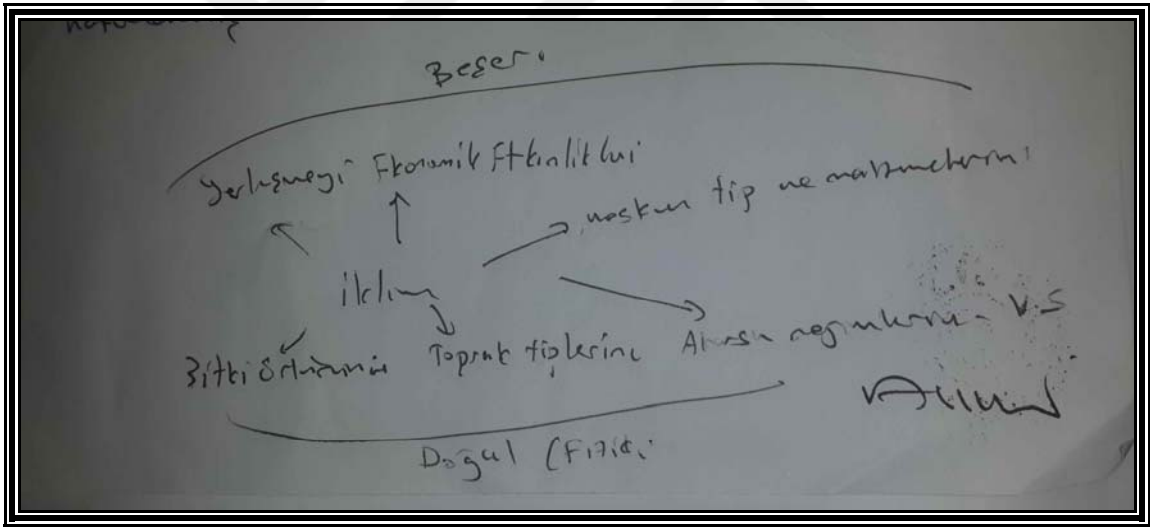 Beşeri
Yerleşmeyi Ekonomik Etkinlikleri
mesken tip ve malzemelerini
iklim
Bitki örtüsünü Toprak tiplerini Akarsu rejimlerini V.S
Doğal (Fiziki